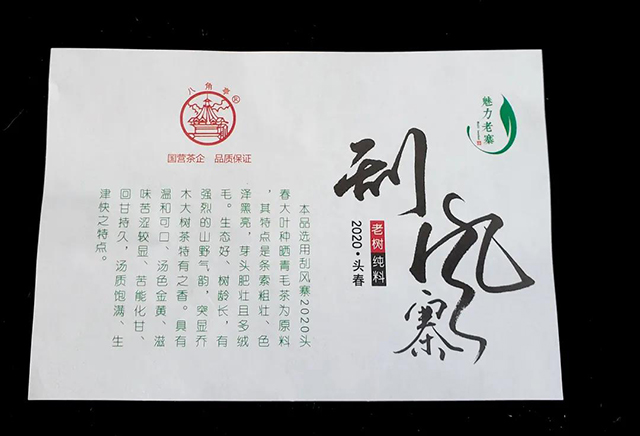 魅力老寨
刮风寨
老树纯料
2020·头春
八角亭®
国营茶企 品质保证
本品选用刮风寨2020头
春大叶种晒青毛茶为原料
，其特点是条索粗壮、色
泽黑亮，芽头肥壮且多绒
毛。生态好、树龄长，有
强烈的山野气韵，突显乔
木大树茶特有之香。具有
温和可口、汤色金黄、滋
味苦涩较显、苦能化甘、
回甘持久，汤质饱满、生
津快之特点。